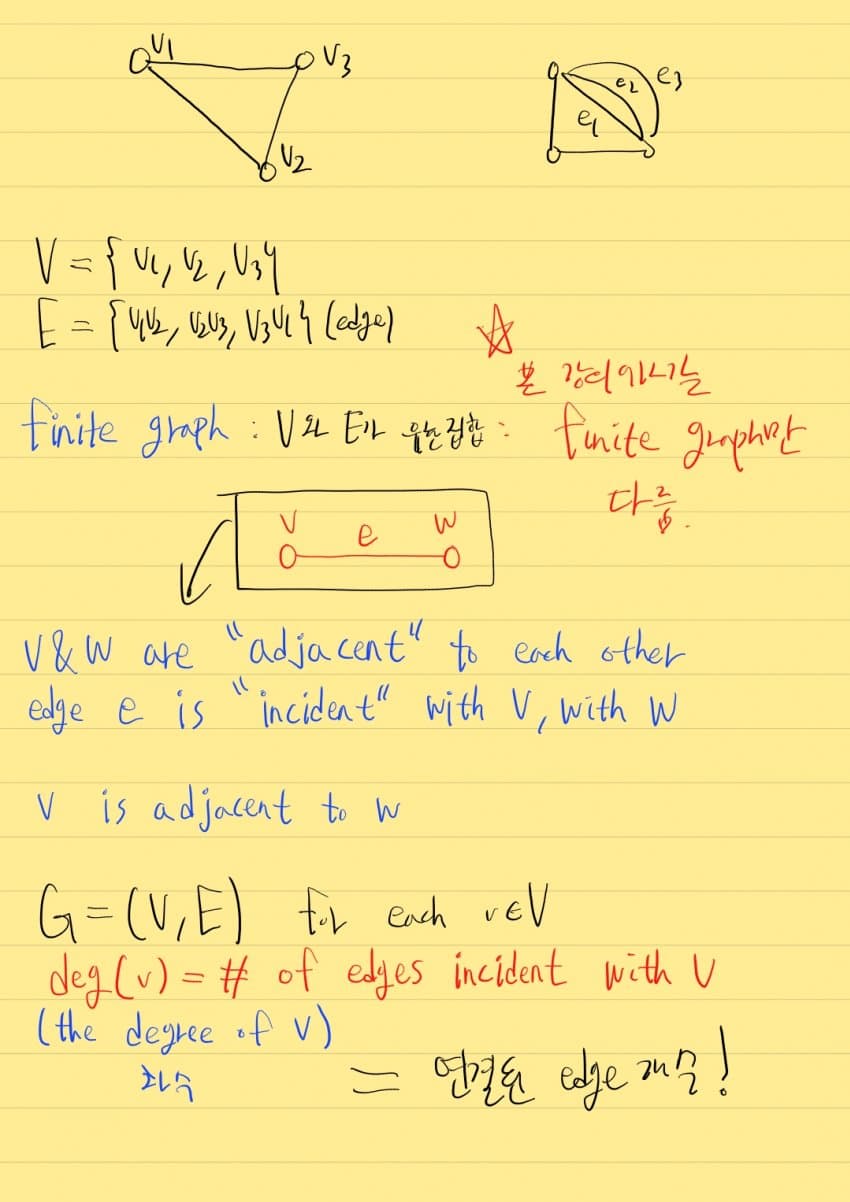 V1
V3
V2
e1
e2
e3
V = { V1, V2, V3 }
E = { V1V2, V2V3, V3V1 } (edge)
☆
본 강의에서는
finite graph : V와 E가 유한집합 : finite graph만
다룸.
V e W
V & W are "adjacent" to each other
edge e is "incident" with V, with W
V is adjacent to W
G = (V, E) for each v ∈ V
deg(v) = # of edges incident with V
(the degree of V)
차수 = 연결된 edge 개수!